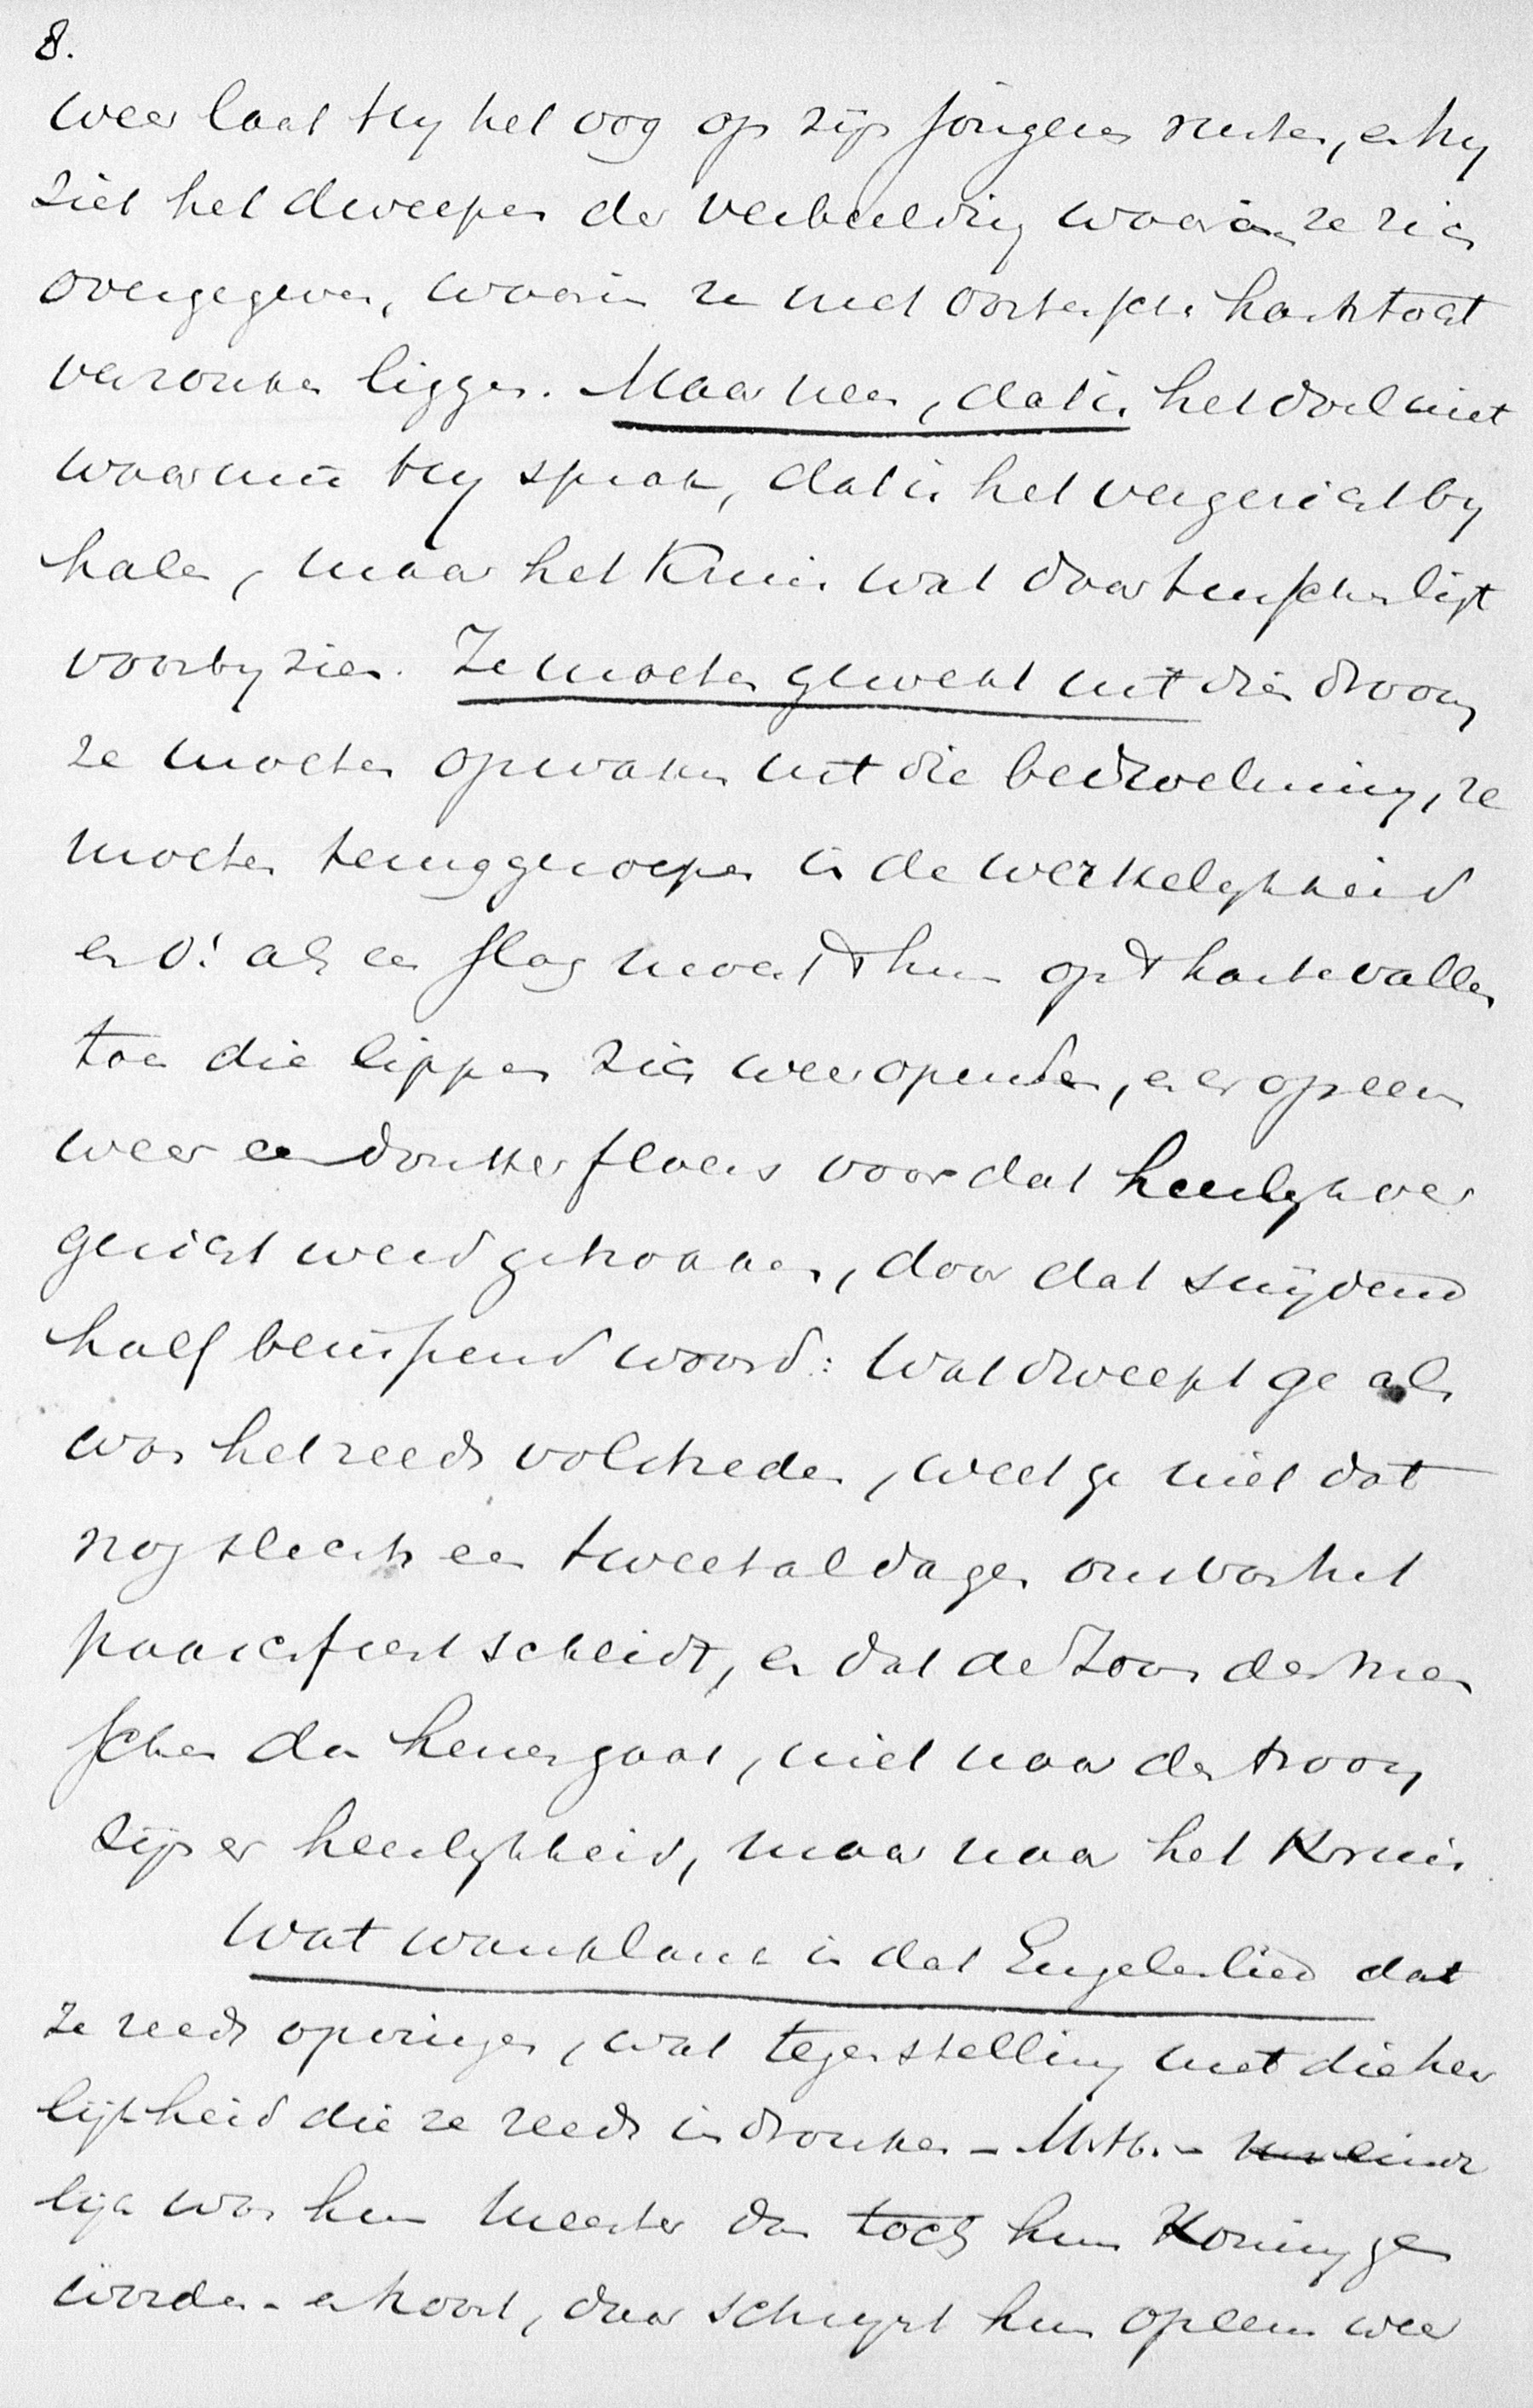 8.
weer laat Hy het oog op zijn jongeren rusten, en hy
ziet het dweepen der verbeelding waaraan ze zich
overgegeven, waarin ze met oostersche hartstocht
verzonken liggen. Maar neen, dat is het doel niet
waarvan Hy sprak, dat is het vergezicht by
halen, maar het Kruis wat daartusschen ligt
voorby zien. Ze moeten gewekt uit dien droom
ze moeten opwaken uit die bedwelming, ze
moeten teruggeroepen in de werkelykheid
en o! als een slag moest 't hun op 't harte vallen
toen die lippen zich weer openden, en er opeen
weer een donker floers voor dat heerlyk ver
gezicht werd getrokken, door dat snijdend
half berispend woord: Wat dweept ge als
was het reeds volstreden, weet ge niet dat
nog slechts een tweetal dagen ons van het
paaschfeest scheidt, en dat de Zoon des men
schen dan henengaat, niet naar den troon
zijner heerlykheid, maar naar het Kruis.
Wat wanklank in dat Engelenlied dat
ze reeds opvingen, wat tegenstelling met die heer
lijkheid die ze reeds indronken - M.H. -
lijk was hun Meester dan toch hun Koning ge
worden - en hoort, daar schrypt hun opeens weer